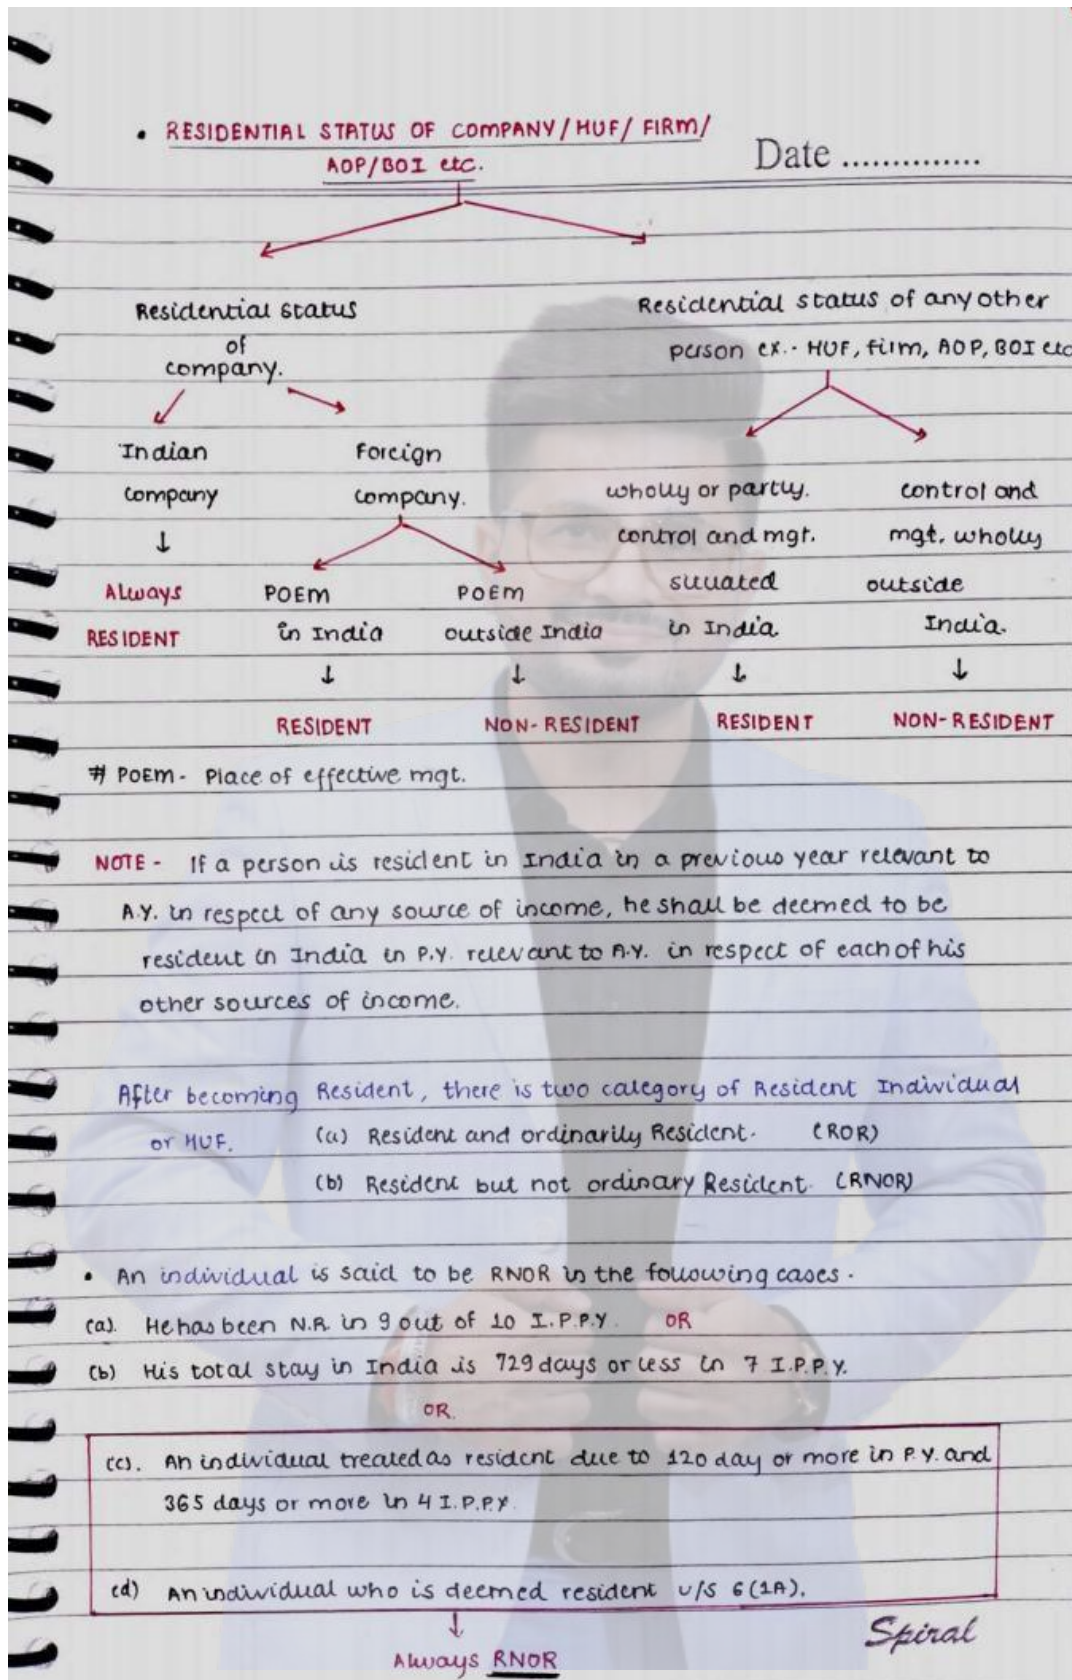 • RESIDENTIAL STATUS OF COMPANY/HUF/ FIRM/
AOP/BOI etc.
Date ..............
Residential status
of
company.
Residential status of any other
person ex.- HUF, firm, AOP, BOI etc
Indian
company
↓
Always
RESIDENT
Foreign
company.
POEM
in India
↓
RESIDENT
POEM
outside India
↓
NON-RESIDENT
wholly or partly.
control and mgt.
situated
in India
↓
RESIDENT
control and
mgt. wholly
outside
India.
↓
NON-RESIDENT
# POEM - Place of effective mgt.
NOTE - If a person is resident in India in a previous year relevant to
A.Y. in respect of any source of income, he shall be deemed to be
resident in India in P.Y. relevant to A.Y. in respect of each of his
other sources of income.
After becoming Resident, there is two category of Resident Individual
or HUF. (a) Resident and ordinarily Resident. (ROR)
(b) Resident but not ordinary Resident. (RNOR)
• An individual is said to be RNOR in the following cases.
(a). He has been N.R. in 9 out of 10 I.P.P.Y. OR
(b) His total stay in India is 729 days or less in 7 I.P.P.Y.
OR.
(c). An individual treated as resident due to 120 day or more in P.Y. and
365 days or more in 4 I.P.P.Y.
(d) An individual who is deemed resident u/s 6(1A).
↓
Always RNOR
Spiral